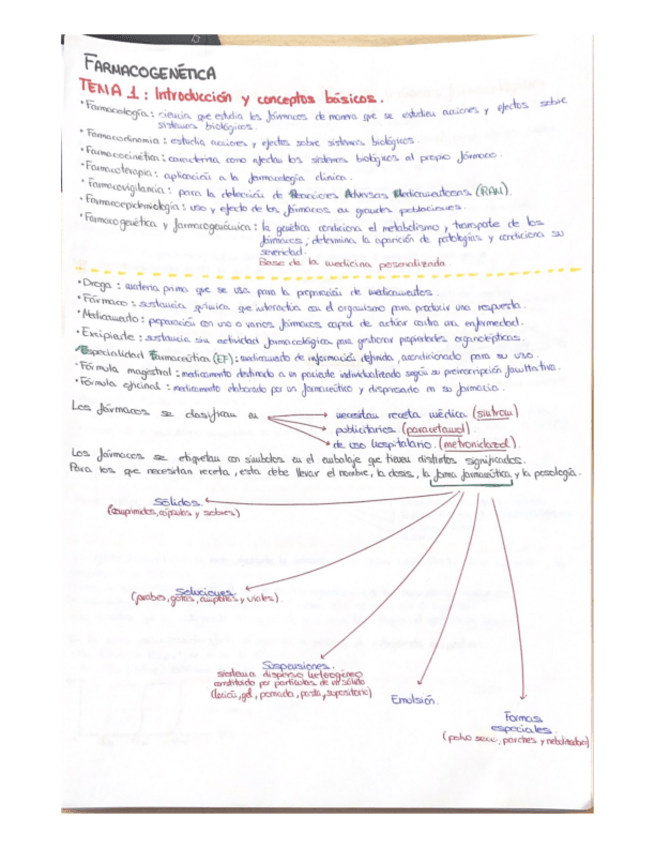 FARMACOGENÉTICA
TEMA 1: Introducción y conceptos básicos.
· Farmacología: ciencia que estudia los fármacos de manera que se estudian acciones y efectos sobre
sistemas biológicos.
· Farmacodinamia: estudia acciones y efectos sobre sistemas biológicos.
· Farmacocinética: caracteriza como afectan los sistemas biológicos al propio fármaco.
· Farmacoterapia: aplicación a la farmacología clínica.
· Farmacovigilancia: para la detección de Reacciones Adversas Medicamentosas (RAM).
· Farmacoepidemiología: uso y efecto de los fármacos en grandes poblaciones.
· Farmacogenética y farmacogenómica: la genética condiciona el metabolismo y transporte de los
fármacos; determina la aparición de patologías y condiciona su
severidad.
Base de la medicina personalizada.
· Droga: materia prima que se usa para la preparación de medicamentos.
· Fármaco: sustancia química que interactúa con el organismo para producir una respuesta.
· Medicamento: preparación con uno o varios fármacos capaz de actuar contra una enfermedad.
· Excipiente: sustancia sin actividad farmacológica para gestionar propiedades organolépticas.
· Especialidad Farmacéutica (EF): medicamento de información definida, acondicionado para su uso.
· Fórmula magistral: medicamento destinado a un paciente individualizado según su preinscripción facultativa.
· Fórmula oficinal: medicamento elaborado por un farmacéutico y dispensado en su farmacia.
Los fármacos se clasifican en
necesitan receta médica (sintrom)
publicitarios (paracetamol).
de uso hospitalario. (metroniclazol).
Los fármacos se etiquetan con símbolos en el embalaje que tienen distintos significados.
Para los que necesitan receta, esta debe llevar el nombre, la dosis, la forma farmacéutica y la posología.
Sólidos.
(comprimidos, cápsulas y sobres)
Soluciones.
(jarabes, gotas, ampollas y viales).
Suspensiones.
sistema disperso heterogéneo
constituido por partículas de un sólido
(loción, gel, pomada, pasta, supositorio)
Emulsión.
Formas
especiales.
(polvo seco, parches y nebulizador)